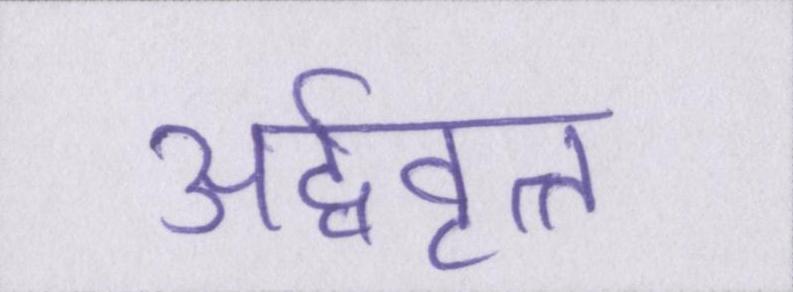 अर्द्धवृत्त